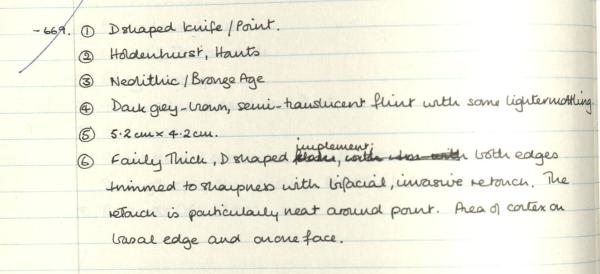 -669. ① D shaped knife / Point.
② Holdenhurst, Hants
③ Neolithic / Bronze Age
④ Dark grey-brown, semi-translucent flint with some lighter mottling.
⑤ 5.2cm x 4.2cm.
implement,
⑥ Fairly Thick, D shaped both edges
trimmed to sharpness with bifacial, invasive retouch. The
retouch is particularly neat around point. Area of cortex on
basal edge and on one face.